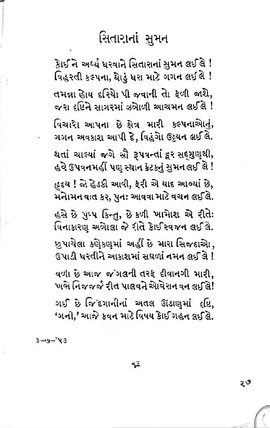 સિતારાનાં સુમન
કોઈને અર્ધ્ય ધરવાને સિતારાનાં સુમન લઈલે !
વિહરતી કલ્પના, થોડું ધરા માટે ગગન લઈલે !
તમન્ના હોય દરિયો પી જવાની તો ફળી જાશે,
જરા દૃષ્ટિને સાગરમાં ઝબોળી આચમન લઈલે !
વિચારો આપના છે ક્ષેત્ર મારી કલ્પનાઓનું,
ગગન અવકાશ આપી દે, વિહંગો ઉડ્ડયન લઈલે.
થતાં ચાલ્યાં જગે સૌ રૂપવન્તાં દૂર સદ્ગુણથી,
હવે ઉપવનમહીં પણ સ્થાન કંટકનું સુમન લઈલે !
હૃદય ! જો હેડકી આવી, ફરી એ યાદ આવ્યાં છે,
મનોમન વાત કર, પુનઃ આવવા માટે વચન લઈલે.
હસે છે પુષ્પ કિન્તુ, છે કળી ખામોશ એ રીતેઃ
વિનાકારણ અબોલા જે રીતે કોઈ સ્વજન લઈલે.
છુપાયેલા કણેકણમાં અહીં છે મારા સિજદાઓ;
ઉપાડી ધરતીને આકાશમાં સઘળાં નમન લઈલે !
વળી છે આજ જંગલની તરફ દીવાનગી મારી,
ખભે નિજ રીત પાલવને ઓ વેરાન વન લઈલે!
ગઈ છે જિંદગાનીનાં અતલ ઊંડાણમાં દૃષ્ટિ,
'ગની', આજે કવન માટે વિષય કોઈ ગહન લઈલે.
૩-૭-'૫૩
૨૭